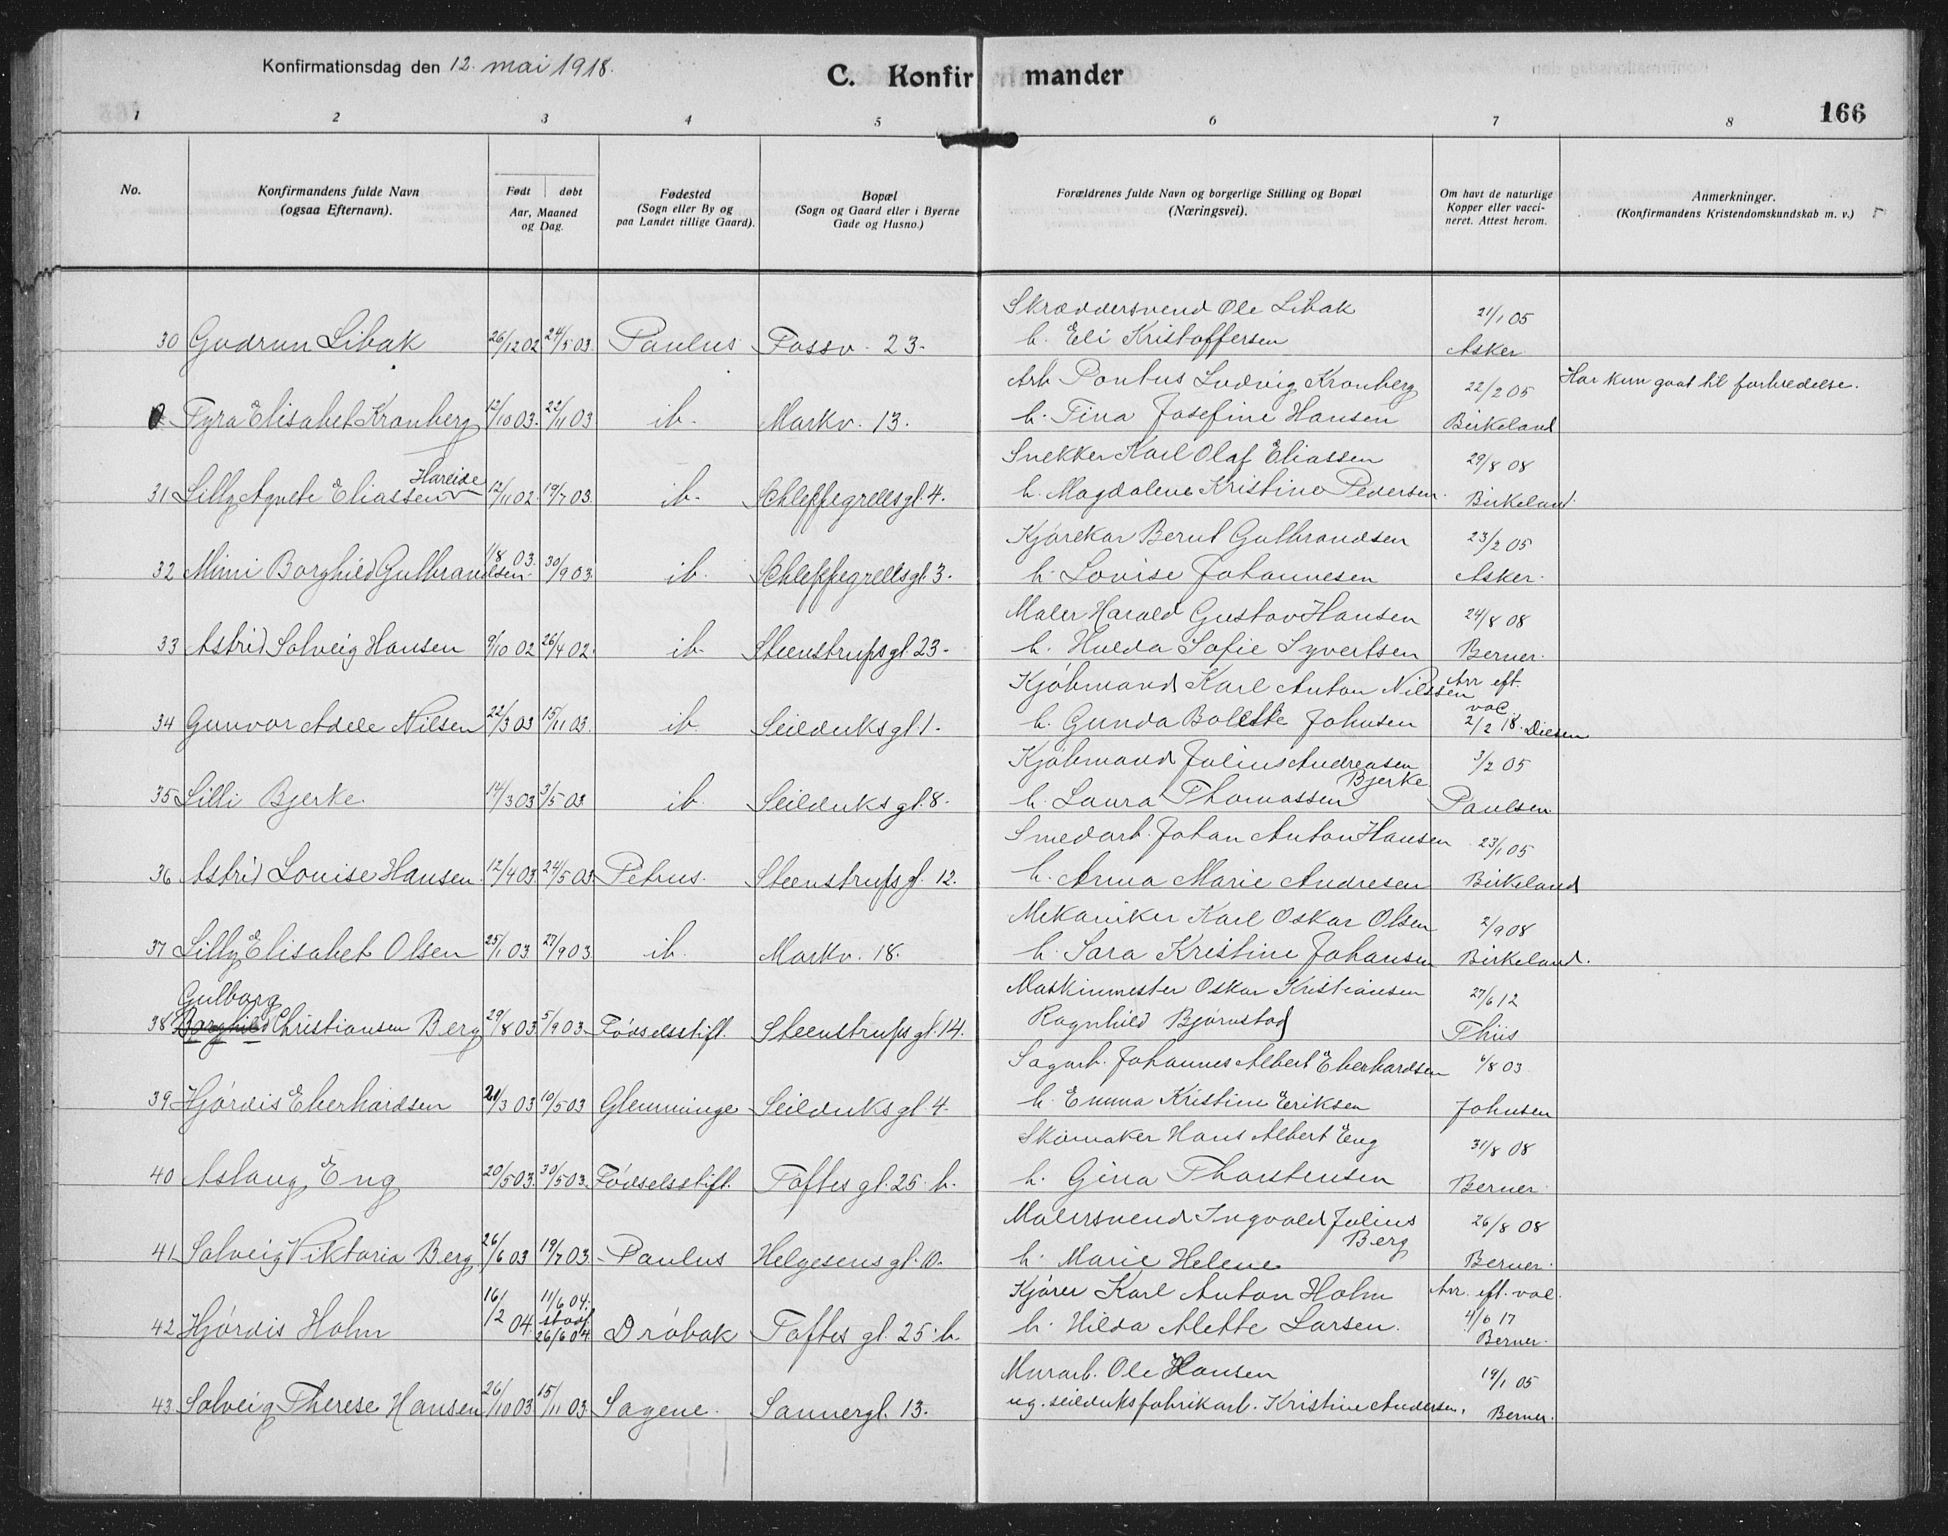 Konfirmationsdag den 12. mai 1918.
C. Konfirmander
166
1 2 3 4 5 6 7 8
No.
Konfirmandens fulde Navn
(ogsaa Efternavn).
Født døbt
Aar, Maaned
og Dag.
Fødested
(Sogn eller By og
paa Landet tillige Gaard).
Bopæl
(Sogn og Gaard eller i Byerne
Gade og Husno.)
Forældrenes fulde Navn og borgerlige Stilling og Bopæl
(Næringsvei).
Om havt de naturlige
Kopper eller vacci-
neret. Attest herom.
Anmerkninger.
(Konfirmandens Kristendomskundskab m. v.)
Skræddersvend Ole Libak 21/1 05
30 Gudrun Libak 26/12 02 24/5 03. Paulus Fossv. 23. h. Eli Kristoffersen Asker.
Arb. Pontus Ludvig Kronberg 22/2 05 Har kun gaat til forberedelse.
Tyra Elisabet Kronberg 12/10 03. 22/11 03 ib. Markv. 13. h. Tina Josefine Hansen Birkeland
Snekker Karl Olaf Eliassen 29/8 08
Hareide
31 Lilly Agnete Eliassen 12/11 02 19/7 03. ib. Schleppegrellsgt. 4. h. Magdalene Kristine Pedersen. Birkeland.
Kjørekar Bernt Gulbrandsen 23/2 05
32 Mimi Borghild Gulbrandsen 11/8 03. 30/9 03. ib. Schleppegrellsgt. 3. h. Lovise Johannesen Asker.
Maler Harald Gustav Hansen 24/8 08
33 Astrid Solveig Hansen 9/10 02 26/4 02. ib. Steenstrupsgt. 23. h. Hulda Sofie Syvertsen Berner.
Kjøbmand Karl Anton Nilssen Arr eft.
vac.
34 Gunvor Adele Nilsen 22/3 03 15/11 03. ib. Seilduksgt. 1. h. Gunda Bolette Johnsen 2/2 18. Diesen
Kjøbmand Julius Andreasen 3/2 05
Bjerke
35 Lilli Bjerke. 14/3 03 3/5 03 ib. Seilduksgt. 8. h. Laura Thomassen Paulsen
Smedarb. Johan Anton Hansen 23/1 05
36 Astrid Louise Hansen. 12/4 03. 24/5 03. Petrus. Steenstrupsgt. 12. h. Anna Marie Andresen Birkeland
Mekaniker Karl Oskar Olsen 2/9 08
37 Lilly Elisabet Olsen 25/1 03. 27/9 03. ib. Markv. 18. h. Sara Kristine Johansen Birkeland.
Maskinmester Oskar Kristiansen 27/6 12
Gulborg
38 Borghild Christiansen Berg 29/8 03. 5/9 03. Fødselsstift. Steenstrupsgt. 14. Ragnhild Bjørnstad Thiis
Sagarb. Johannes Albert Eberhardsen 4/8 03
39 Hjørdis Eberhardsen 21/3 03 10/5 03 Glemminge Seilduksgt. 4. h. Emma Kristine Eriksen Johnsen
Skomaker Hans Albert Eng 31/8 08
40 Aslaug Eng 20/5 03. 30/5 03. Fødselsstift. Toftes gt. 25. b. h. Gina Thorstensen Berner.
Malersvend Ingvald Julius 26/8 08
Berg
41 Solveig Viktoria Berg 26/6 03 19/7 03. Paulus Helgesens gt. 10. h. Marie Helene Berner.
Kjører Karl Anton Holm Arr. eft. vac.
42 Hjørdis Holm 16/2 04. 11/6 04. stadf 26/6 04. Drøbak Toftes gt. 25. b. h. Hilda Alette Larsen. 4/6 17
Berner.
Murarb. Ole Hansen 19/1 05
43 Solveig Therese Hansen 26/10 03 15/11 03. Sagene. Sannergt. 13. ug. seilduksfabrikarb. Kristine Andersen. Berner.